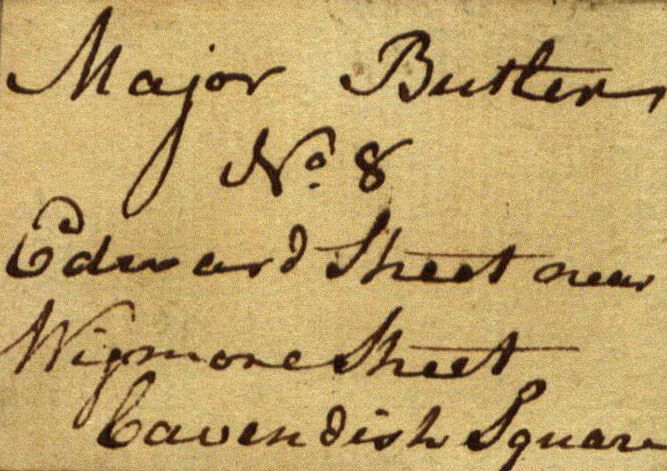 Major Butlers
No. 8
Edward Street near
Wigmore Street
Cavendish Square